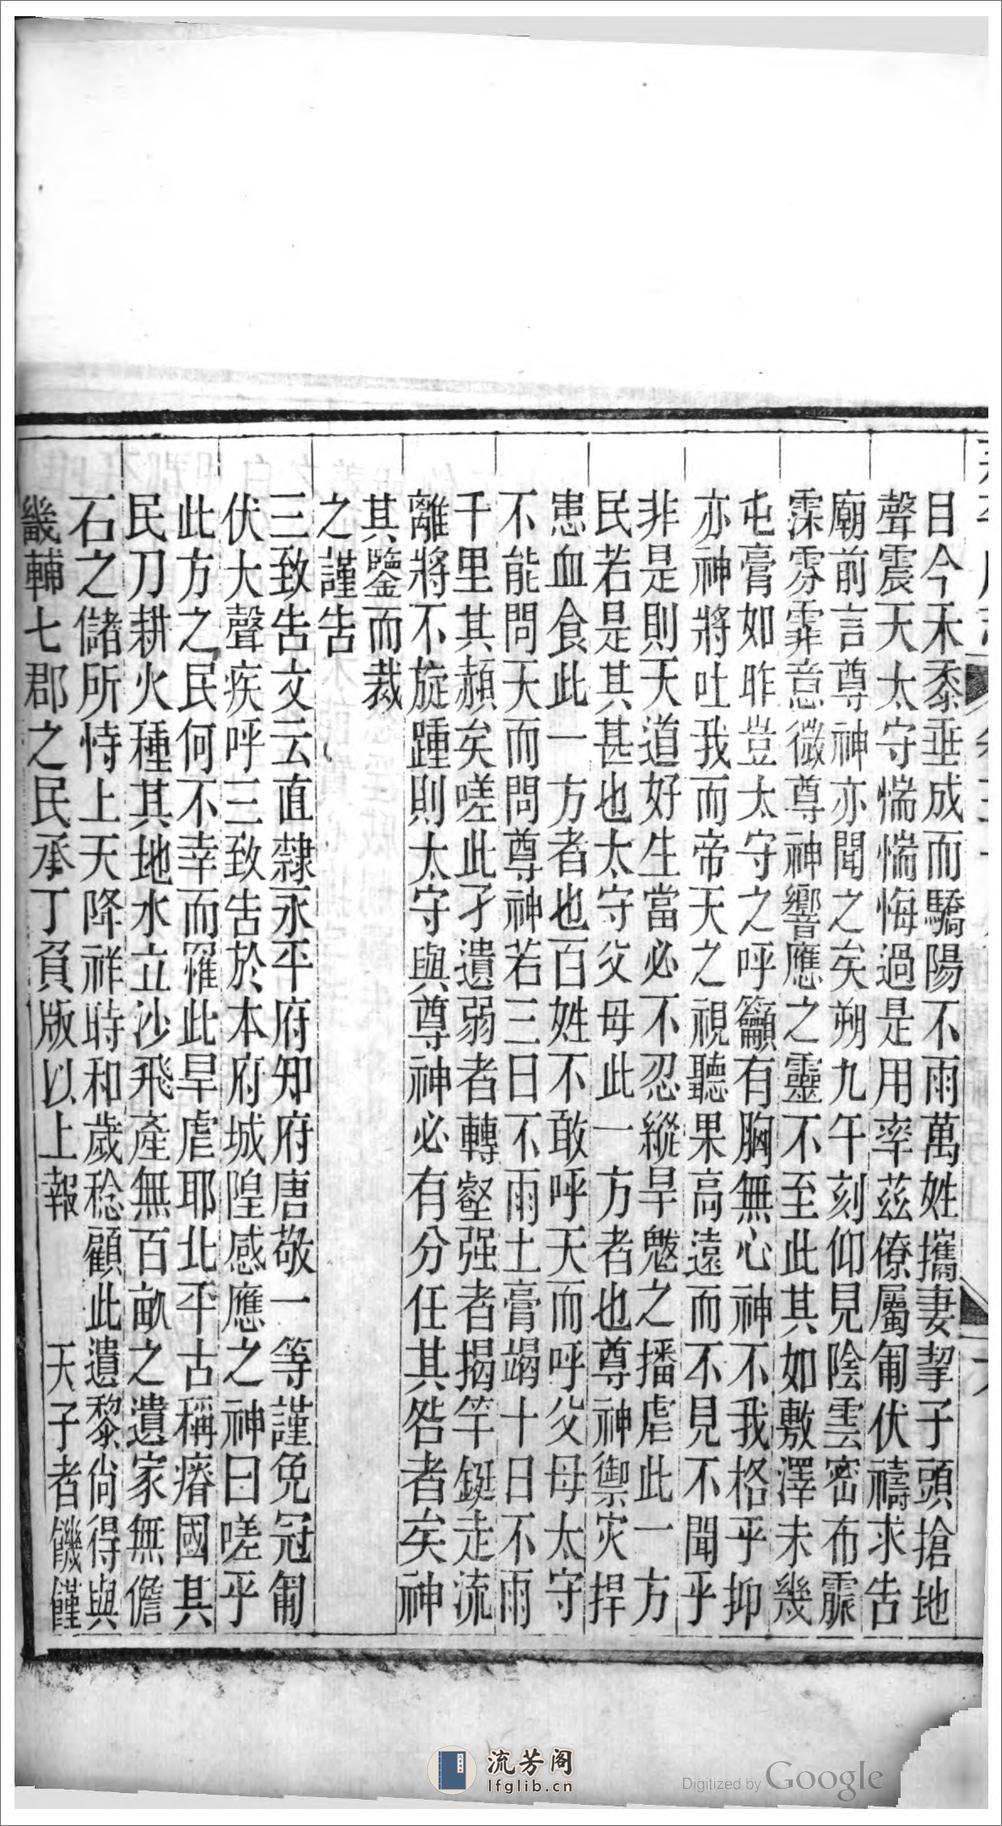 目今禾黍垂成而驕陽不雨萬姓攜妻挈子頭搶地
聲震天太守惴惴悔過是用率茲僚屬匍伏禱求告
廟前言尊神亦聞之矣朔九午刻仰見陰雲密布霢
霂雰霏意微尊神響應之靈不至此其如敷澤未幾
屯膏如昨豈太守之呼籲有胸無心神不我格乎抑
亦神將吐我而帝天之視聽果高遠而不見不聞乎
非是則天道好生當必不忍縱旱魃之播虐此一方
民若是其甚也太守父母此一方者也尊神禦灾捍
患血食此一方者也百姓不敢呼天而呼父母太守
不能問天而問尊神若三日不雨土膏竭十日不雨
千里其赬矣嗟此孑遺弱者轉壑强者揭竿鋌走流
離將不旋踵則太守與尊神必有分任其咎者矣神
其鑒而裁
之謹告
三致告文云直隸永平府知府唐敬一等謹免冠匍
伏大聲疾呼三致告於本府城隍感應之神曰嗟乎
此方之民何不幸而罹此旱虐耶北平古稱瘠國其
民刀耕火種其地水立沙飛產無百畝之遺家無儋
石之儲所恃上天降祥時和歲稔顧此遺黎尙得與
畿輔七郡之民承丁負版以上報 天子者饑饉
流芳阁
lfglib.cn
Digitized by Google